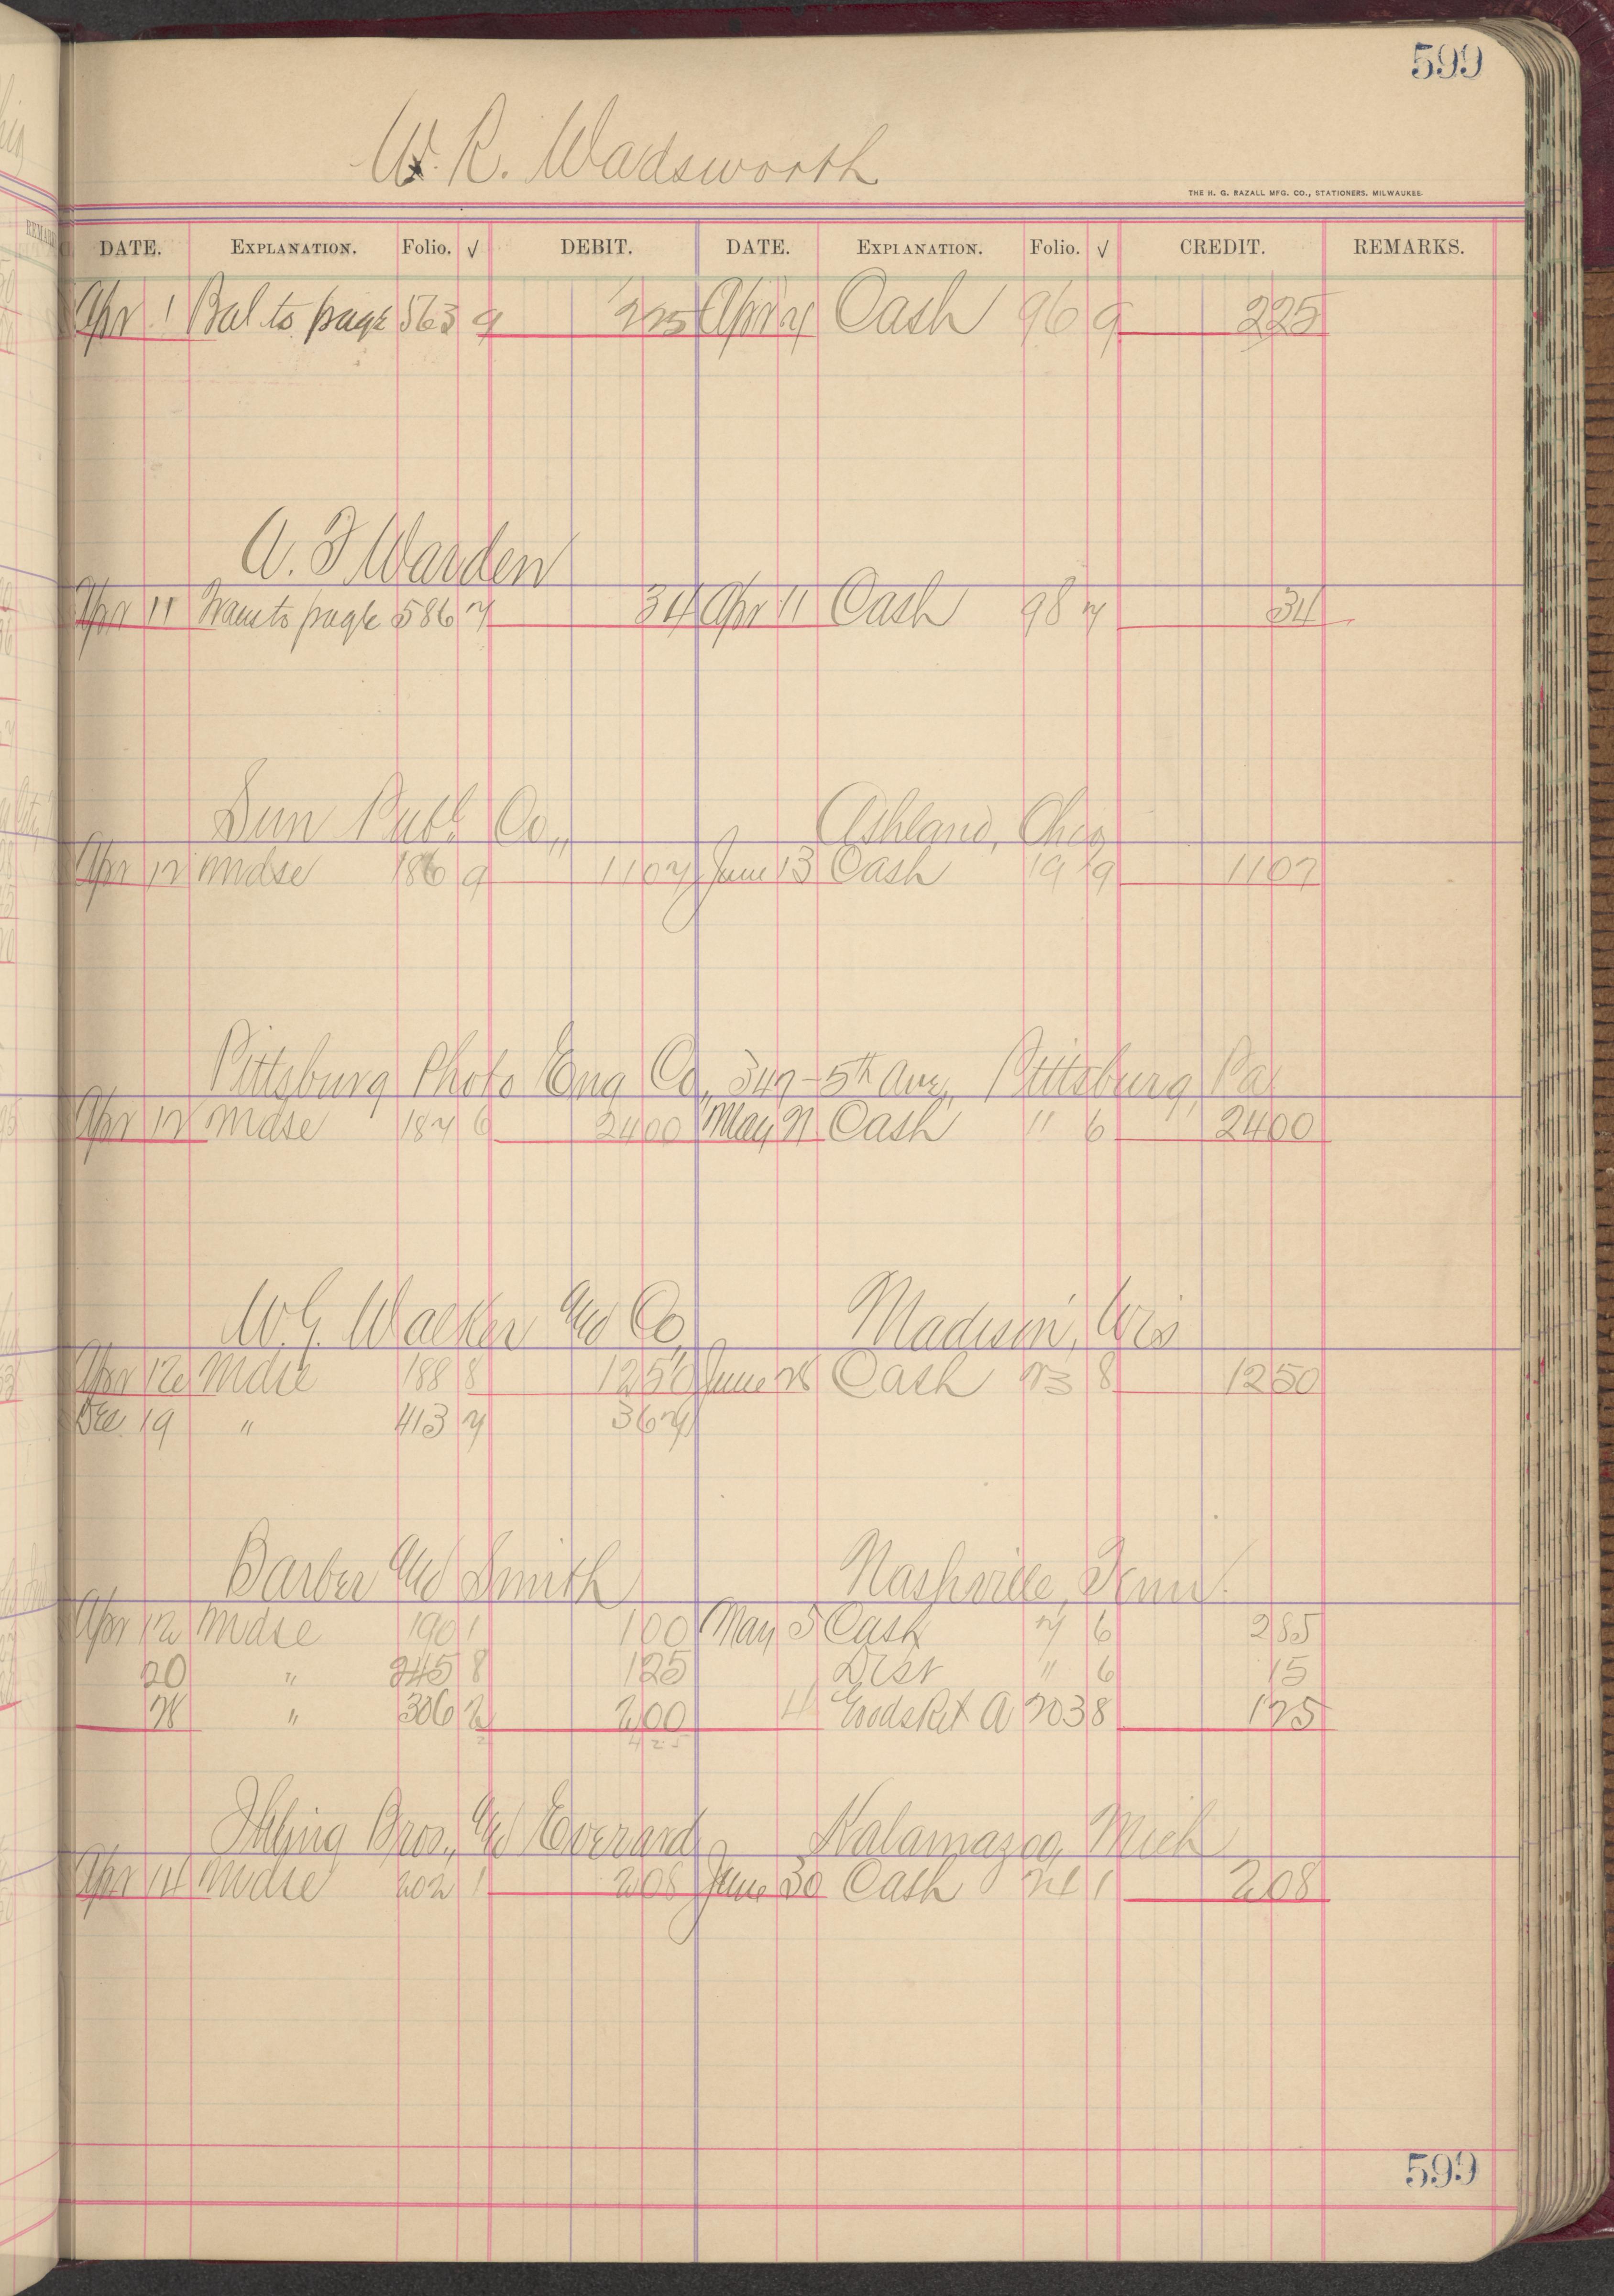 599
W. R. Wadsworth
THE H. G. RAZALL MFG. CO., STATIONERS. MILWAUKEE.
DATE. EXPLANATION. Folio. √ DEBIT. DATE. EXPLANATION. Folio. √ CREDIT. REMARKS.
Apr 1 Bal to page 563 9 225 Apr 7 Cash 96 9 225
A. F Warden
Apr 11 Trans to page 586 7 34 Apr 11 Cash 98 7 34
Sun Publ Co., Ashland, Ohio
Apr 12 Mdse 186 9 1107 June 13 Cash 19 9 1107
Pittsburg Photo Eng Co, 347-5th Ave, Pittsburg, Pa
Apr 12 Mdse 187 6 2400 May 21 Cash 11 6 2400
W.G. Walker and Co, Madison, Wis
Apr 12 Mdse 188 8 1250 June 28 Cash 23 8 1250
Dec 19 " 413 7 367
Barber and Smith Nashville, Tenn.
Apr 12 Mdse 190 1 100 May 5 Cash 7 6 285
20 " 245 8 125 Disc " 6 15
28 " 306 2 200 Goods Ret A 203 8 125
2 425
Ihling Bros., and Everard Kalamazoo, Mich
Apr 14 Mdse 202 1 208 June 30 Cash 24 1 208
599